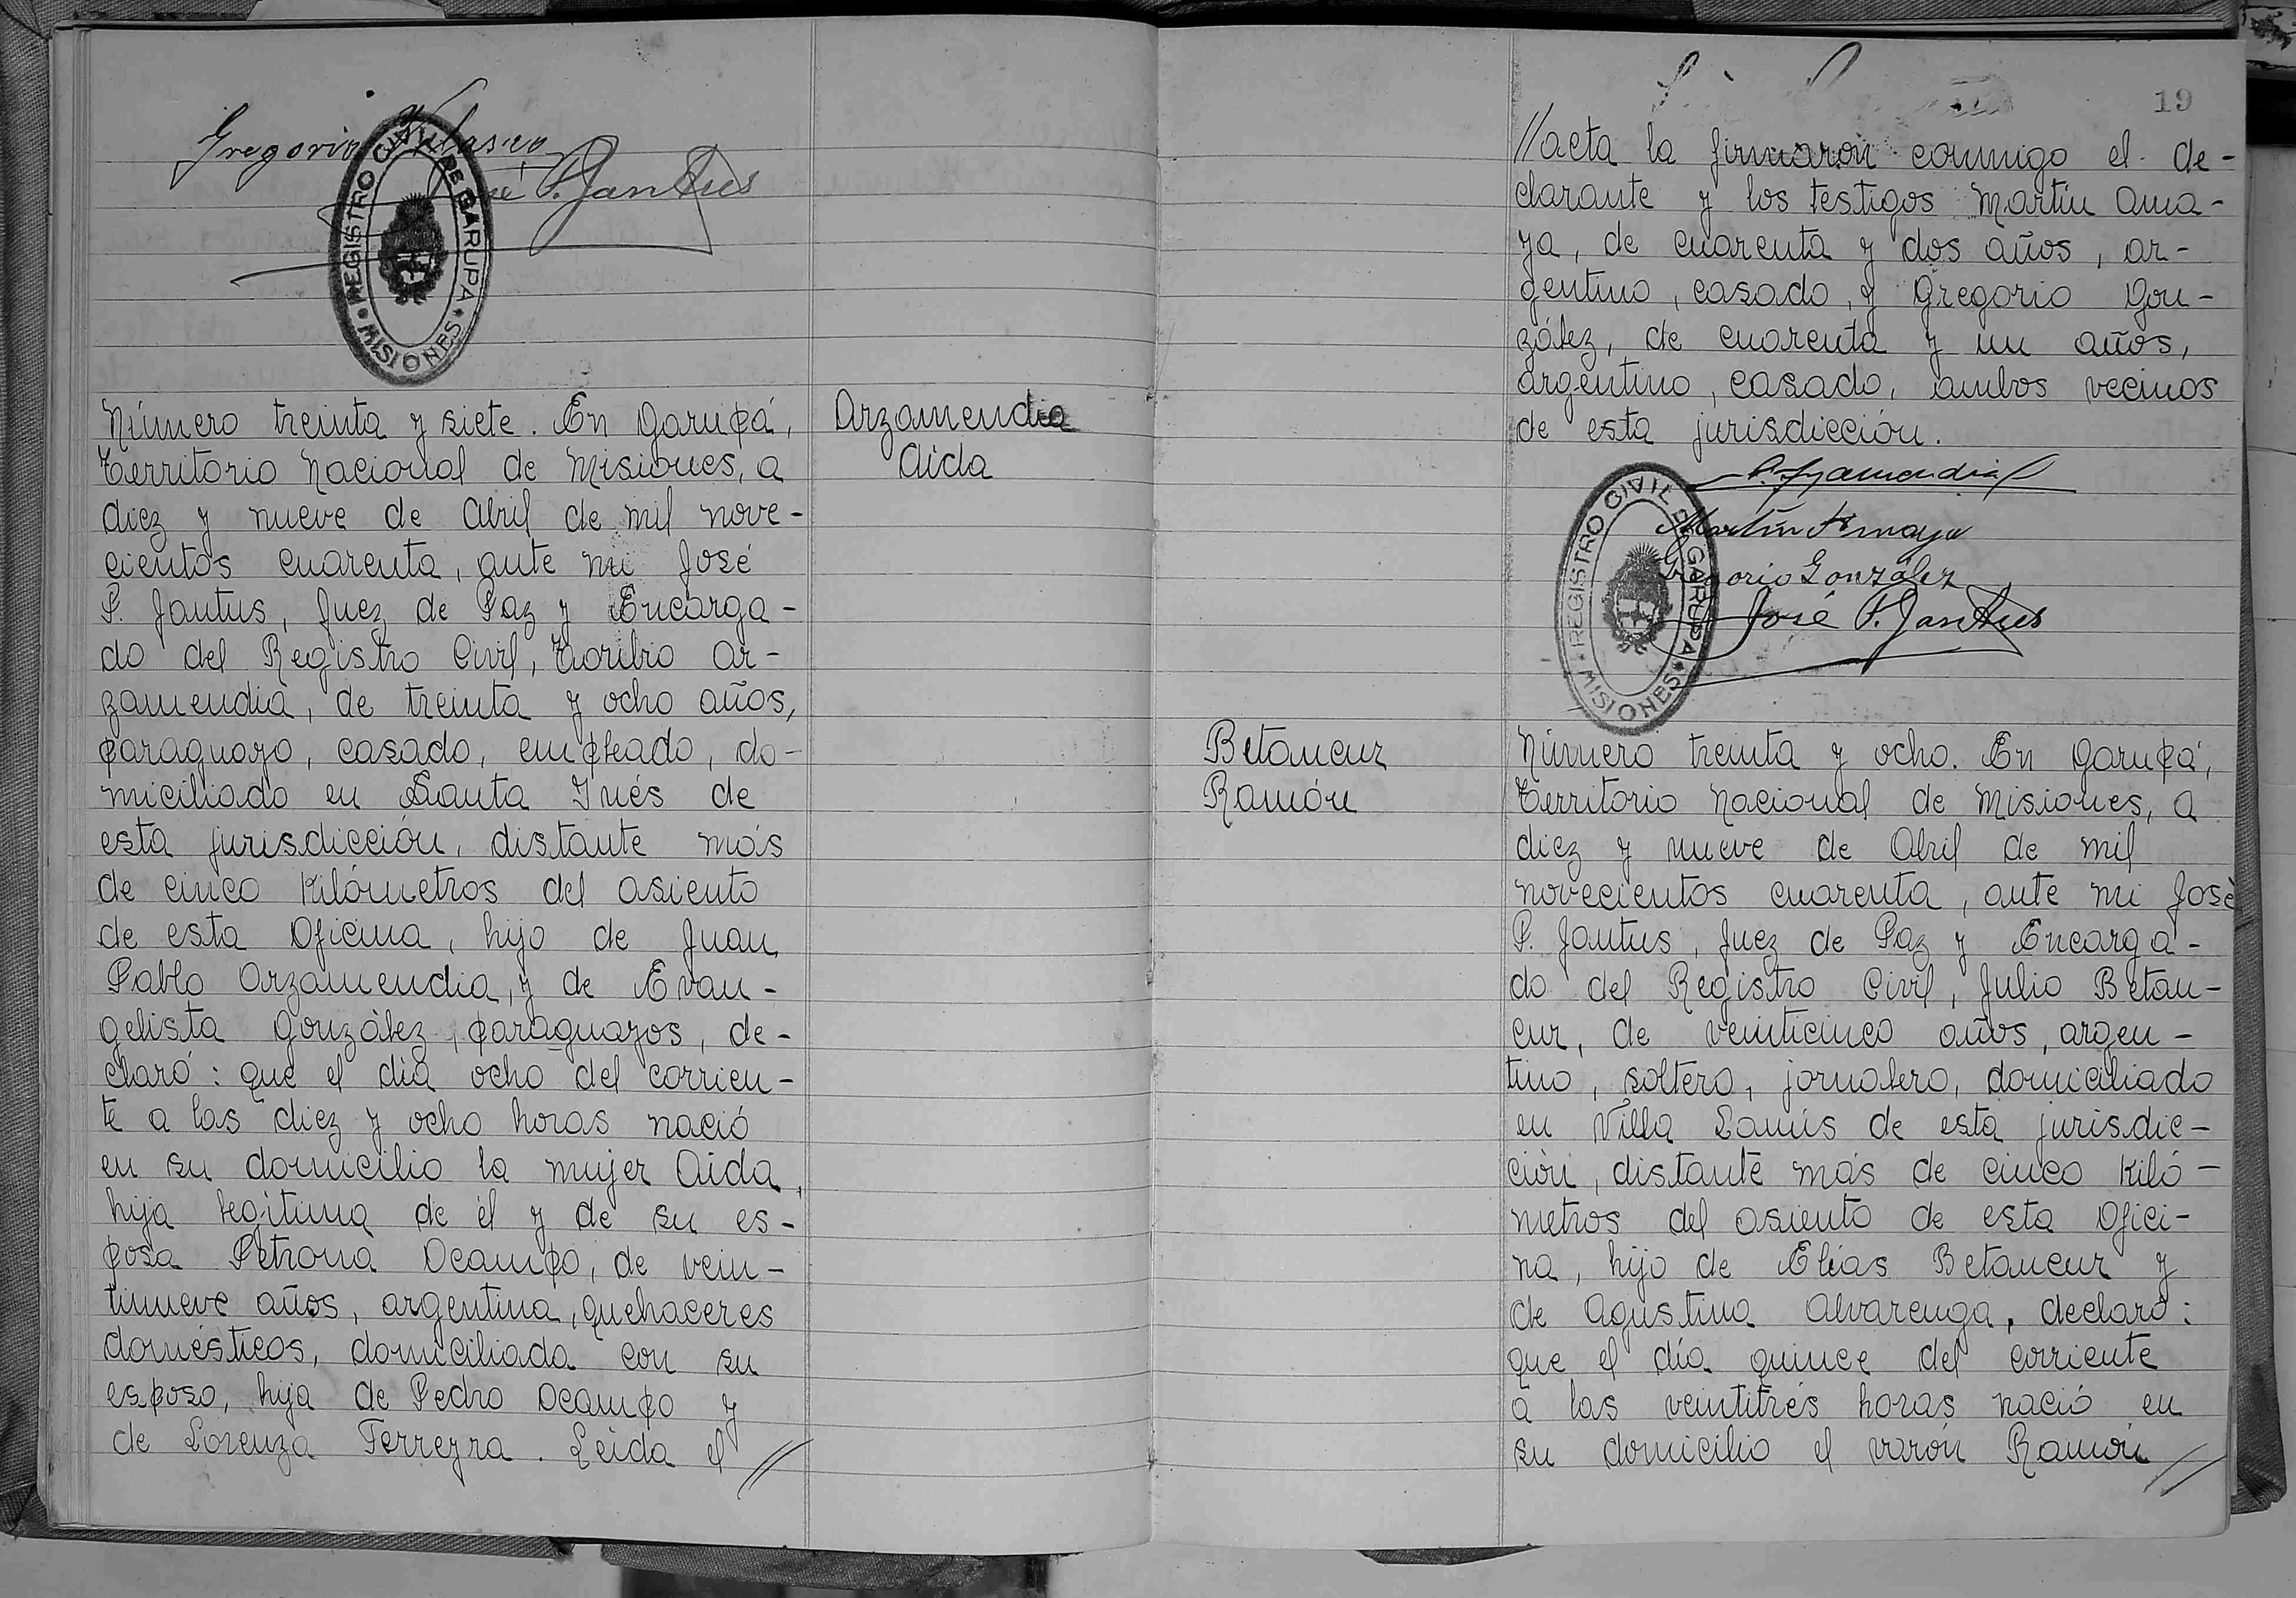 Gregorio Velasco
José P. Jantus
REGISTRO CIVIL DE GARUPA
MISIONES
Número treinta y siete. En Garupá,
Territorio Nacional de Misiones, a
diez y nueve de Abril de mil nove-
cientos cuarenta, ante mi José
P. Jantus, Juez de Paz y Encarga-
do del Registro Civil, Toribio Ar-
zamendia, de treinta y ocho años,
paraguayo, casado, empleado, do-
miciliado en Santa Inés de
esta jurisdicción, distante más
de cinco Kilómetros del asiento
de esta Oficina, hijo de Juan
Pablo Arzamendia, y de Evan-
gelista González, paraguayos, de-
claró: que el día ocho del corrien-
te a las diez y ocho horas nació
en su domicilio la mujer Aida,
hija legítima de él y de su es-
posa Petrona Ocampo, de vein-
tinueve años, argentina, quehaceres
domésticos, domiciliada con su
esposo, hija de Pedro Ocampo y
de Lorenza Ferreyra. Leida el //
Arzamendia
Aida
19
//acta la firmaron conmigo el de-
clarante y los testigos Martín Ama-
ya, de cuarenta y dos años, ar-
gentino, casado, y Gregorio Gon-
zález, de cuarenta y un años,
argentino, casado, ambos vecinos
de esta jurisdicción.
T. Arzamendia
Martín Amaya
Gregorio González
José P. Jantus
REGISTRO CIVIL DE GARUPA
MISIONES
Betancur
Ramón
Número treinta y ocho. En Garupá,
Territorio Nacional de Misiones, a
diez y nueve de Abril de mil
novecientos cuarenta, ante mi José
P. Jantus, Juez de Paz y Encarga-
do del Registro Civil, Julio Betan-
cur, de veinticinco años, argen-
tino, soltero, jornalero, domiciliado
en Villa Lanús de esta jurisdic-
ción, distante más de cinco Kiló-
metros del asiento de esta Ofici-
na, hijo de Elías Betancur y
de Agustina Alvarenga, declaró:
que el día quince del corriente
a las veintitrés horas nació en
su domicilio el varón Ramón //